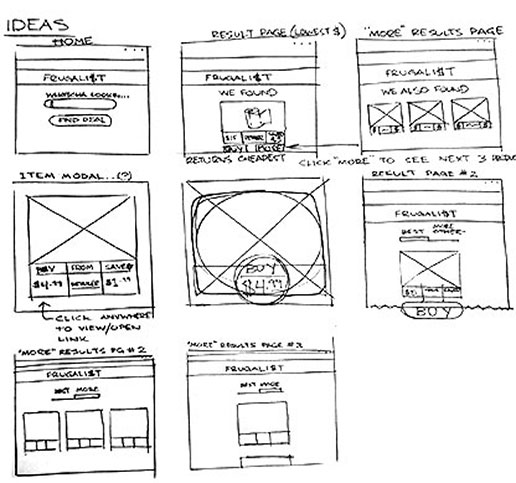 IDEAS
HOME
FRUGALI$T
FIND DEAL
RESULT PAGE (LOWEST $)
FRUGALI$T
WE FOUND
BUY MORE
RETURNS CHEAPEST
"MORE" RESULTS PAGE
FRUGALI$T
WE ALSO FOUND
CLICK "MORE" TO SEE NEXT 3
ITEM MODAL...(?)
BUY FROM SAVE$
$4.99 $1.99
CLICK ANYWHERE
TO VIEW/OPEN
LINK
BUY
$4.99
RESULT PAGE #2
FRUGALI$T
BEST MORE
BUY
"MORE" RESULTS PG #2
FRUGALI$T
BEST MORE
"MORE" RESULTS PAGE #3
FRUGALI$T
BEST MORE